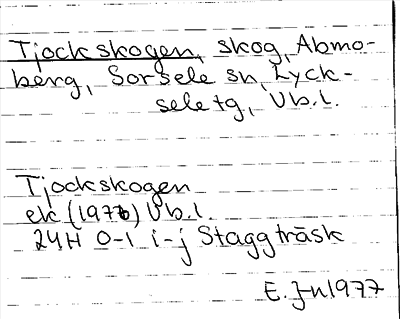 Tjockskogen, skog, Abmo-
berg, Sorsele sn, Lyck-
sele tg, Vb.l.
Tjockskogen
ek (1976) Vb.l.
24H 0-1 i-j Staggträsk
E. J-n 1977